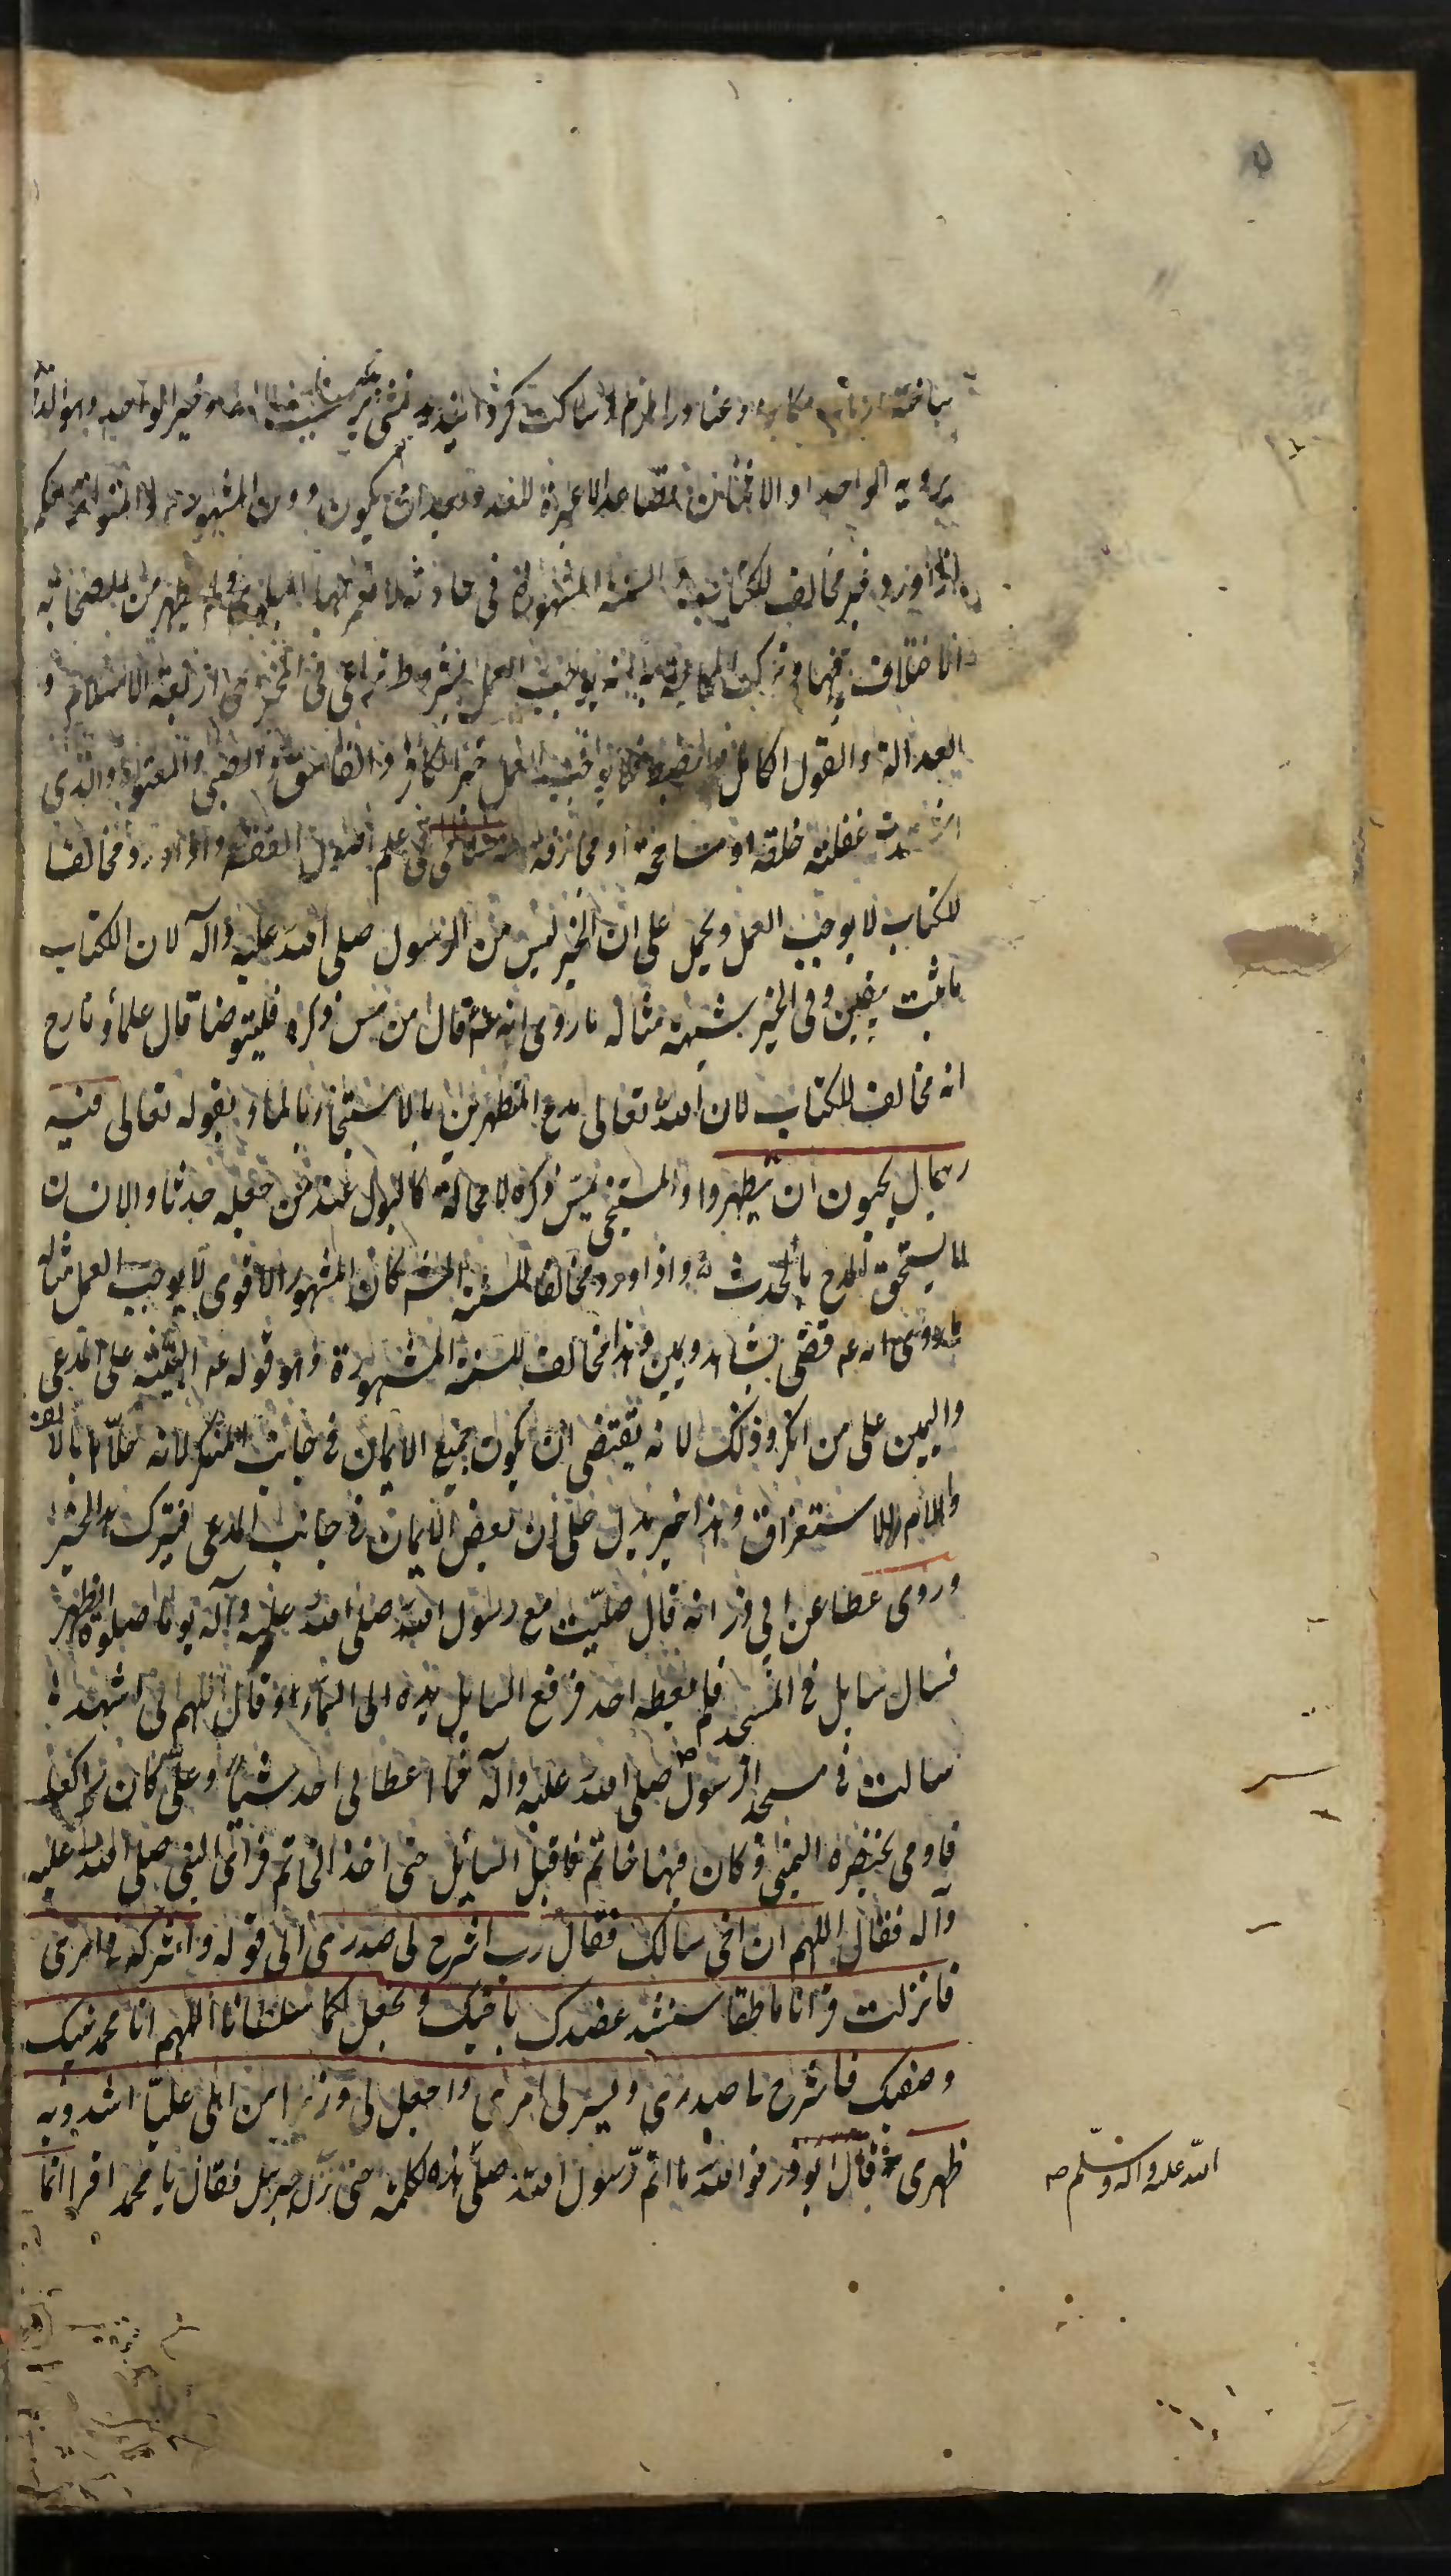 ساخته مكابر و معاند را ملزم و ساكت كردانيد خبر الواحد وهو الذى
يرويه الواحد او الاثنان فصاعدا لا عبرة للعدد بعد ان يكون دون المشهور والمتواتر حكمه
اذا ورد غير مخالف للكتاب والسنة المشهورة فى حادثة لا تعم بها البلوى ولم يظهر من الصحابة
الاختلاف فيها وترك المحاجة به انه يوجب العمل بشروط تراعى فى المخبر وهى اربعة الاسلام و
العدالة والعقل الكامل والضبط فلا يوجب العمل خبر الكافر والفاسق والصبى والمعتوه والذى
اشتدت غفلته خلقة او مسامحة او مجازفة فى علم اصول الفقه واذا ورد مخالفا
للكتاب لا يوجب العمل ويحمل على ان الخبر ليس من الرسول صلى الله عليه وآله لان الكتاب
ثابت بيقين وفى الخبر شبهة مثاله ما روى انه عم قال من مس ذكره فليتوضا قال علماؤنا رح
انه مخالف للكتاب لان الله تعالى مدح المتطهرين بالاستنجاء بالماء بقوله تعالى فيه
رجال يحبون ان يتطهروا والمستنجى يمس ذكره لا محالة كالبول عند من جعله حدثا والانسان
لا يستحق المدح بالحدث واذا ورد مخالفا للسنة المشهورة كان المشهور الاقوى لا يوجب العمل مثاله
ما روى انه عم قضى بشاهد ويمين وهذا مخالف للسنة المشهورة وهو قوله عم البينة على المدعى
واليمين على من انكر وذلك لانه يقتضى ان يكون جميع الايمان فى جانب المنكر لانه محلا بالالف
واللام للاستغراق وهذا خبر يدل على ان بعض الايمان فى جانب المدعى فيترك الخبر
وروى عطا عن ابى ذر انه قال صليت مع رسول الله صلى الله عليه وآله يوما صلوة الظهر
فسال سايل فى المسجد فلم يعطه احد فرفع السايل يده الى السماء وقال اللهم انى اشهد
سالت فى مسجد الرسول صلى الله عليه وآله فما اعطانى احد شيئا وعلى كان راكعا
فاومى بخنصره اليمنى وكان فيها خاتم فاقبل السائل حتى اخذ الخاتم فراى النبى صلى الله عليه
وآله فقال اللهم ان اخى سالك فقال رب اشرح لى صدرى الى قوله واشركه فى امرى
فانزلت قرانا ناطقا سنشد عضدك باخيك ونجعل لكما سلطانا اللهم انا محمد نبيك
وصفيك فاشرح لى صدرى ويسر لى امرى واجعل لى وزيرا من اهلى عليا اشدد به
ظهرى قال ابو ذر فوالله ما اتم رسول الله صلى هذه الكلمة حتى نزل جبريل فقال يا محمد اقرا انما
الله عليه وآله وسلم صح